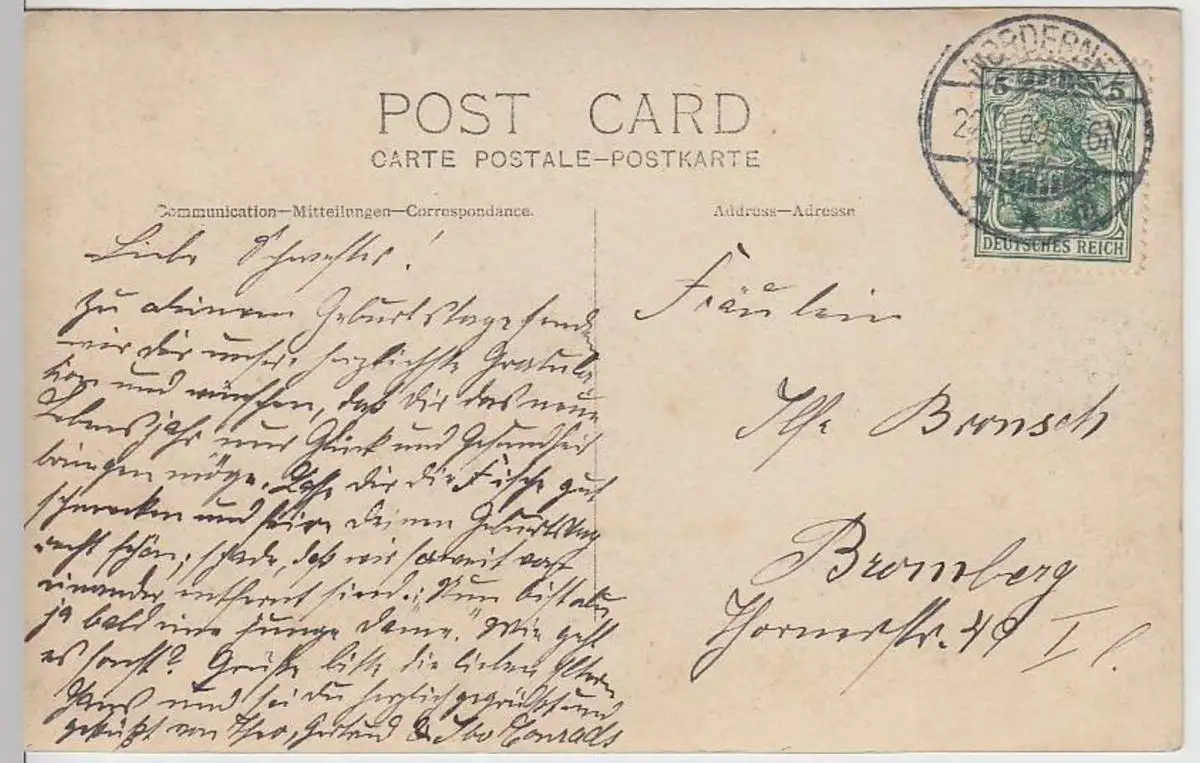 POST CARD
CARTE POSTALE—POSTKARTE
Communication—Mitteilungen—Correspondance.
Address—Adresse
NORDERNEY
6N
5 5
DEUTSCHES REICH
Liebe Schwester!
Zu deinem Geburtstage senden
wir dir unsere herzlichste Gratula
tion und wünschen, daß dir das neue
Lebensjahr nur Glück und Gesundheit
bringen möge. Laße dir die Fische gut
schmecken und feire deinen Geburtstag
recht schön; schade, daß wir so weit von
einander entfernt sind. Nun bist du
ja bald eine "junge Dame". Wie geht
es sonst? Grüße bitte die lieben Eltern
Hans und sei du herzlich gegrüßt und
geküßt von Theo, & Ivo Conrads
Fräulein
Ilse Bronsch
Bromberg
Thornerstr. 49 I l.